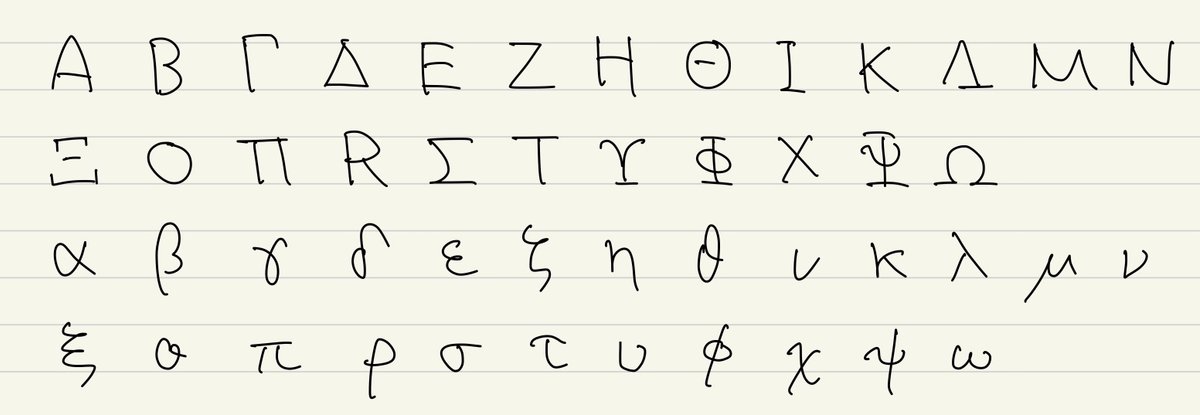 Α Β Γ Δ Ε Ζ Η Θ Ι Κ Λ Μ Ν
Ξ Ο Π R Σ Τ Υ Φ Χ Ψ Ω
α β γ δ ε ζ η θ ι κ λ μ ν
ξ ο π ρ σ τ υ φ χ ψ ω